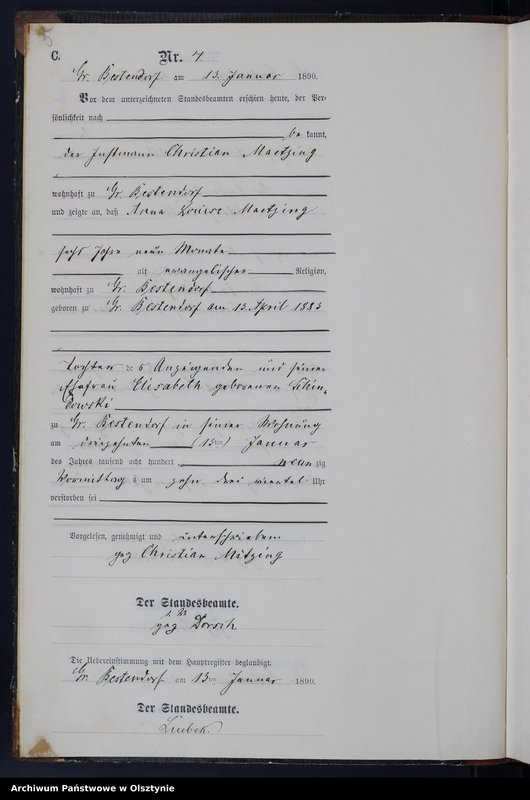 5
C.
Nr. 4
Gr. Bestendorf am 13. Januar 1890.
Vor dem unterzeichneten Standesbeamten erschien heute, der Per-
sönlichkeit nach
be kannt,
der Instmann Christian Maetzing
wohnhaft zu Gr. Bestendorf
und zeigte an, daß Anna Louise Maetzing
sechs Jahre neun Monate
alt evangelischer Religion,
wohnhaft zu Gr. Bestendorf
geboren zu Gr. Bestendorf am 13. April 1883
Tochter des Anzeigenden und seiner
Ehefrau Elisabeth geborenen Schin-
dowski
zu Gr. Bestendorf in seiner Wohnung
am dreizehnten (13ten) Januar
des Jahres tausend acht hundert neun zig
Vormittags um zehn drei viertel Uhr
verstorben sei
Vorgelesen, genehmigt und unterschrieben
gez Christian Mätzing
Der Standesbeamte.
gez Dorsch
Die Uebereinstimmung mit dem Hauptregister beglaubigt.
Gr. Bestendorf am 13ten Januar 1890.
Der Standesbeamte.
Archiwum Państwowe w Olsztynie